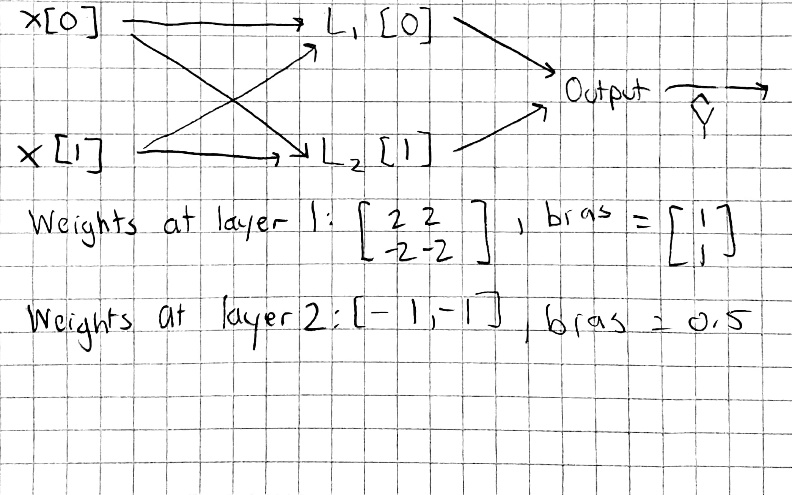 x[0] L₁ [0]
Output
Ŷ
x [1] L₂ [1]
Weights at layer 1: [2 2
-2 -2], bias = [1
1]
Weights at layer 2: [-1, -1], bias = 0.5